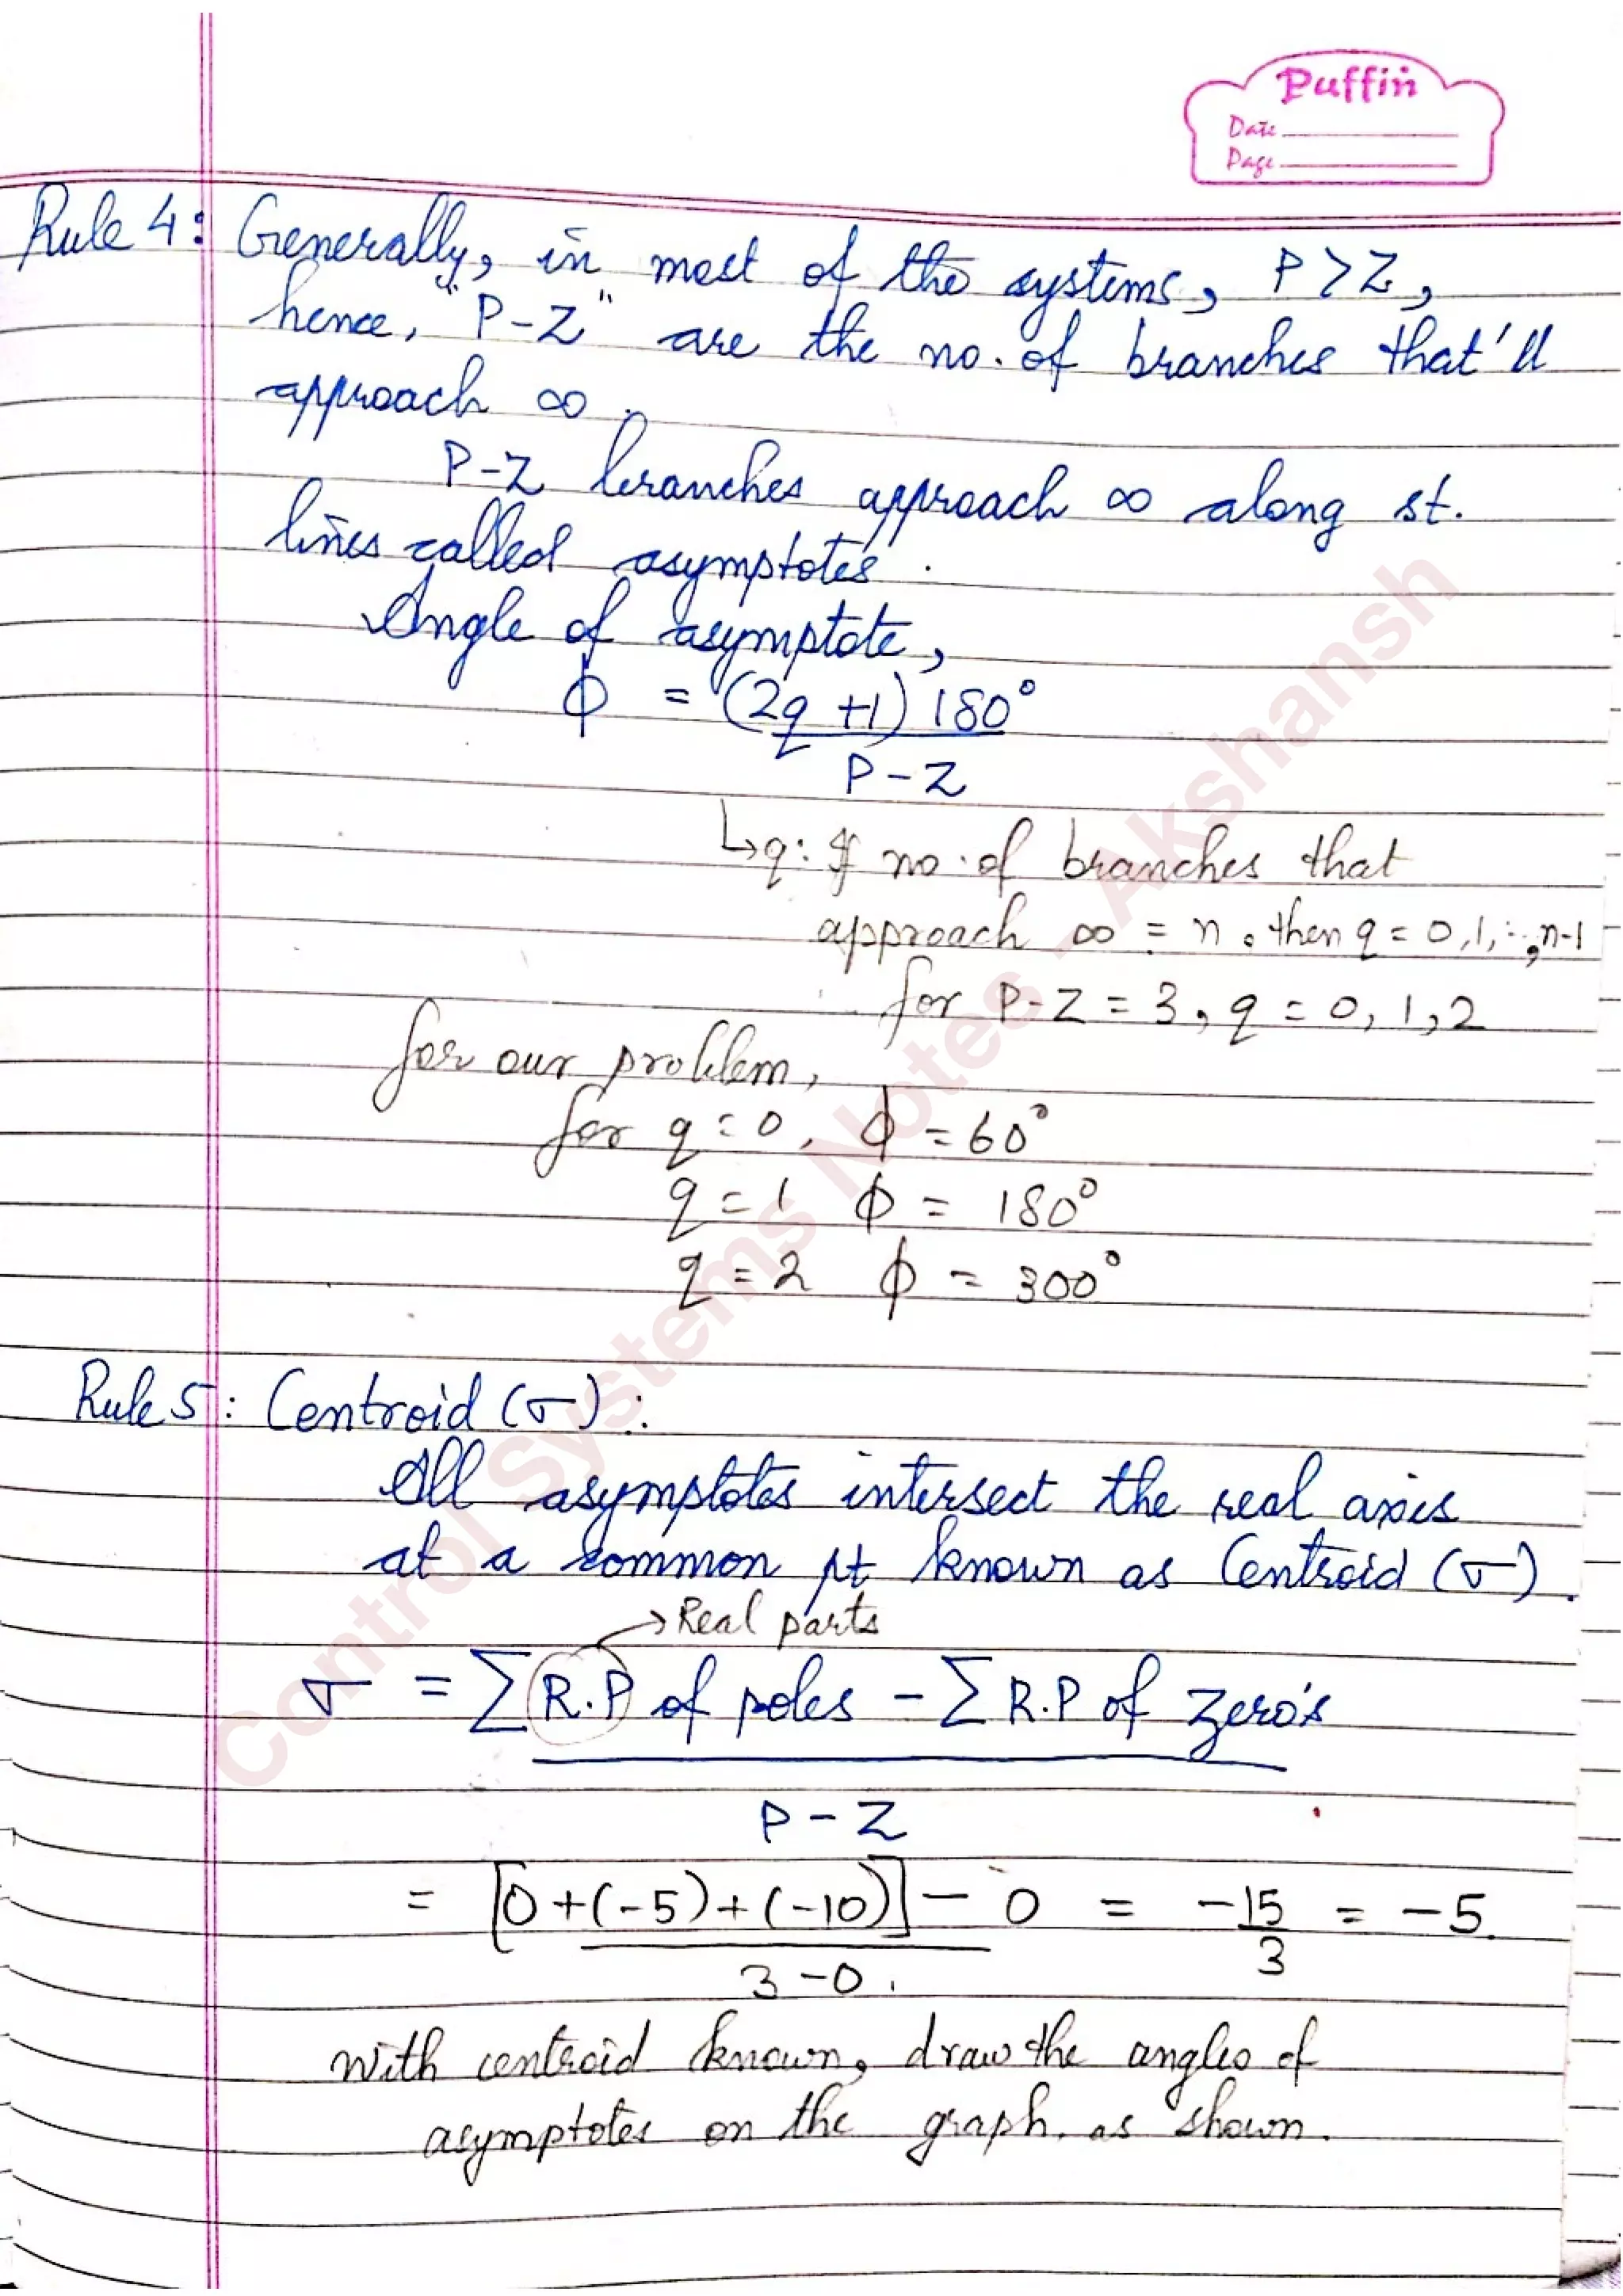 Puffin
Date
Page
Rule 4: Generally, in most of the systems, P > Z,
hence, "P-Z" are the no. of branches that'll
approach ∞.
P-Z branches approach ∞ along st.
lines called asymptotes.
Angle of asymptote,
ϕ = (2q+1) 180°
P-Z
↳ q: If no. of branches that
approach ∞ = n. then q = 0,1,..,n-1
for P-Z = 3, q = 0, 1, 2
for our problem,
for q = 0, ϕ = 60°
q = 1 ϕ = 180°
q = 2 ϕ = 300°
Rule 5: Centroid (σ):
All asymptotes intersect the real axis
at a common pt known as Centroid (σ).
→ Real parts
σ = Σ R.P of poles - Σ R.P of zero's
P-Z
= [0+(-5)+(-10)] - 0 = -15 = -5.
3-0. 3
with centroid known, draw the angles of
asymptotes on the graph. as shown.
Control Systems Notes - Akshansh